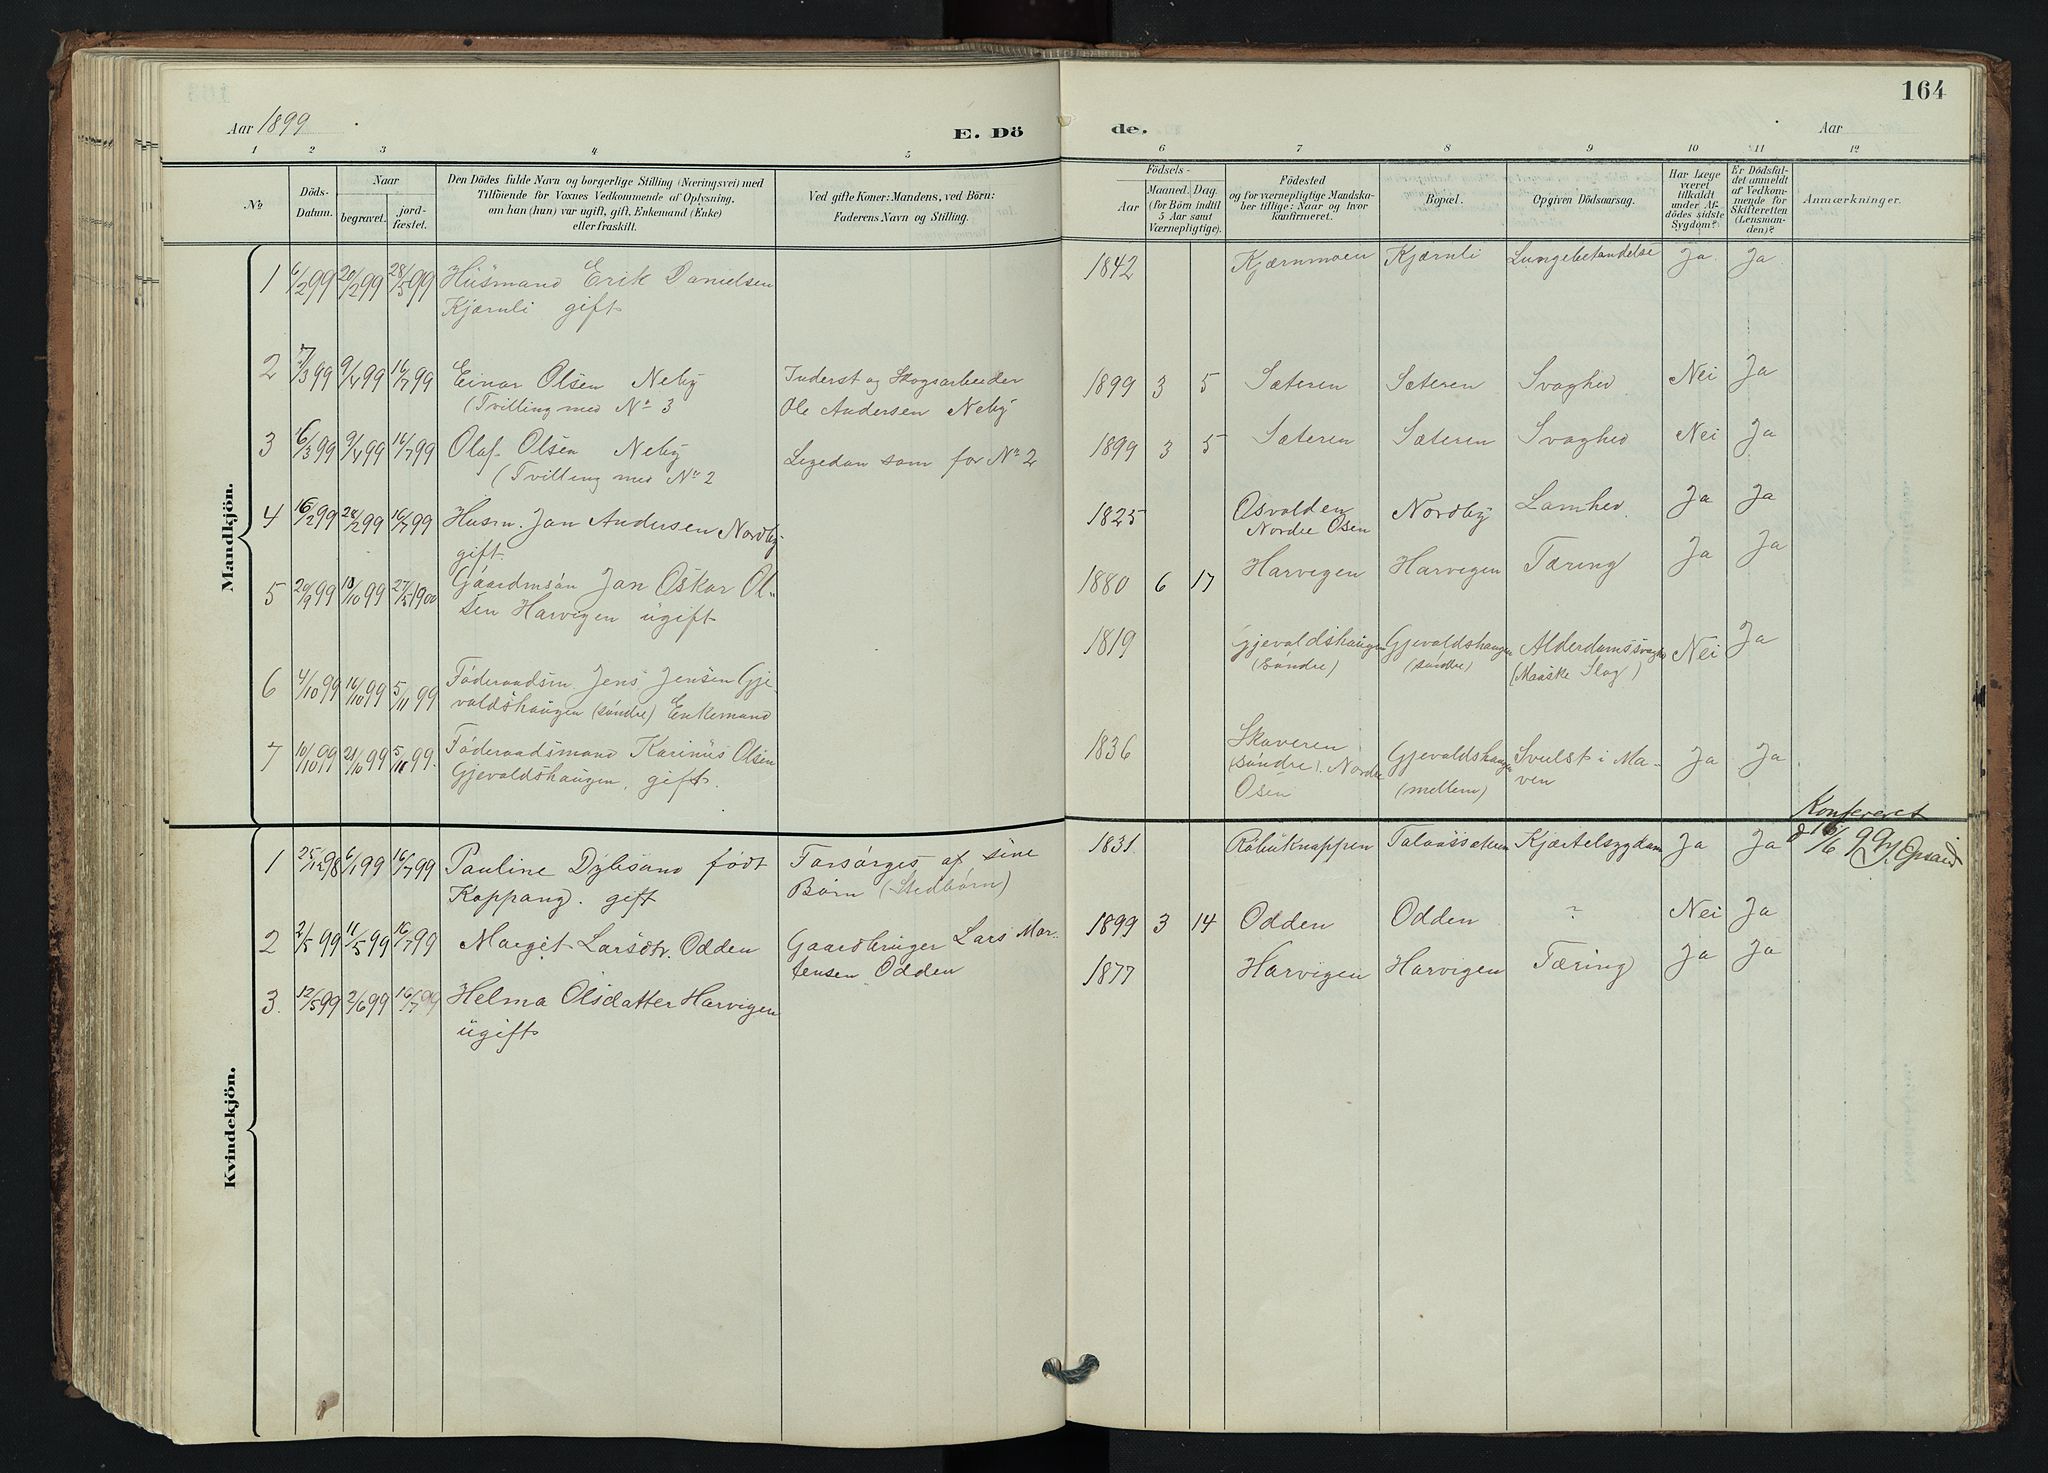 164
Aar 1899
E. Dö
de.
Aar
1 2 3 4 5 6 7 8 9 10 11 12
No
Döds-
Datum.
Naar
begravet.
jord-
fæstet.
Den Dödes fulde Navn og borgerlige Stilling (Næringsvei) med
Tilföiende for Voxnes Vedkommende af Oplysning,
om han (hun) var ugift, gift, Enkemand (Enke)
eller fraskilt.
Ved gifte Koner: Mandens, ved Börn:
Faderens Navn og Stilling.
Födsels-
Aar
Maaned. Dag.
(for Börn indtil
5 Aar samt
Værnepligtige).
Födested
og for værnepligtige Mandska-
ber tillige: Naar og hvor
konfirmeret.
Bopæl.
Opgiven Dödsaarsag.
Har Læge
været
tilkaldt
under Af-
dödes sidste
Sygdom?
Er Dödsfal-
det anmeldt
af Vedkom-
mende for
Skifteretten
(Lensman-
den)?
Anmærkninger.
Mandkjön.
1 6/2 99 20/2 99 28/5 99 Husmand Erik Danielsen 1842 Kjærnmoen Kjærnli Lungebetændelse Ja Ja
Kjærnli gift
2 7/3 99 9/4 99 16/7 99 Einar Olsen Neby Inderst og Skogsarbeider 1899 3 5 Sæteren Sæteren Svaghed Nei Ja
(Tvilling med No 3 Ole Andersen Neby
3 16/3 99 9/4 99 16/7 99 Olaf Olsen Neby Ligedan som for No 2 1899 3 5 Sæteren Sæteren Svaghed Nei Ja
(Tvilling med No 2
4 16/2 99 28/2 99 16/7 99 Husm. Jan Andersen Nordby 1825 Osvolden Nordby Lamhed. Ja Ja
gift. Nordre Osen
5 20/9 99 18/10 99 27/5 1900 Gaardmsön Jan Oskar Ol- 1880 6 17 Harvigen Harvigen Tæring Ja Ja
sen Harvigen ugift
6 4/10 99 16/10 99 5/11 99 Föderaadsm. Jens Jensen Gje- 1819 Gjevaldshaugen Gjevaldshaugen Alderdomssvaghd Nei Ja
valdshaugen (söndre) Enkemand (Söndre) (söndre) (Maaske Slag)
7 10/10 99 21/10 99 5/11 99. Föderaadsmand Karinus Olsen 1836 Skaveren Gjevaldshaugen Svulst i Ma- Ja Ja
Gjevaldshaugen, gift. (Söndre). Nordre (mellem) ven
Osen
Kvindekjön.
Konfereret
d 16/6 99
1 25/12 98 6/1 99 16/7 99 Pauline Dybsand född Forsörges af sine 1831 Talaassæteren Kjærtelsygdom Ja Ja
Koppang. gift Börn (Stedbörn)
2 2/5 99 11/5 99 16/7 99 Margit Larsdtr. Odden Gaardbruger Lars Mor- 1899 3 14 Odden Odden ? Nei Ja
tensen Odden
3. 12/5 99 2/6 99 16/7 99 Helma Olsdatter Harvigen 1877 Harvigen Harvigen Tæring Ja Ja
ugift